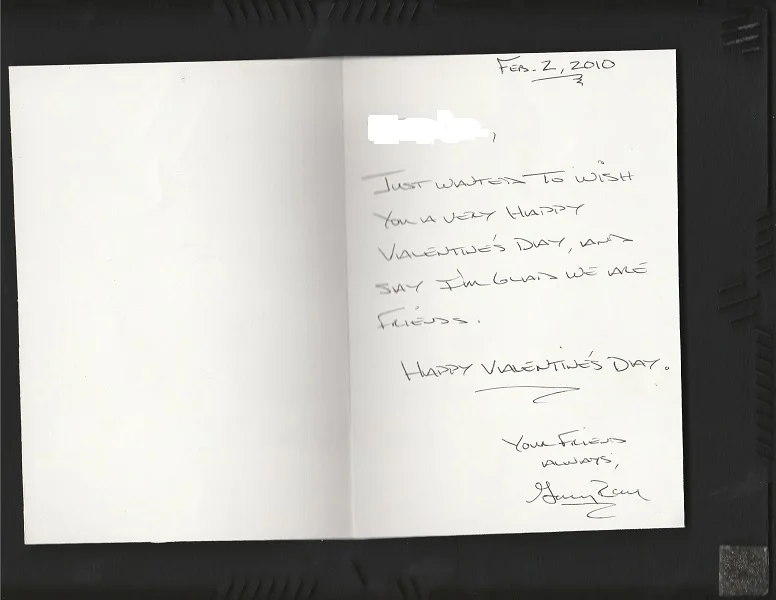 FEB. 2, 2010
,
JUST WANTED TO WISH
YOU A VERY HAPPY
VALENTINE'S DAY, AND
SAY I'M GLAD WE ARE
FRIENDS.
HAPPY VALENTINE'S DAY.
YOUR FRIEND
ALWAYS,
Gary Ray